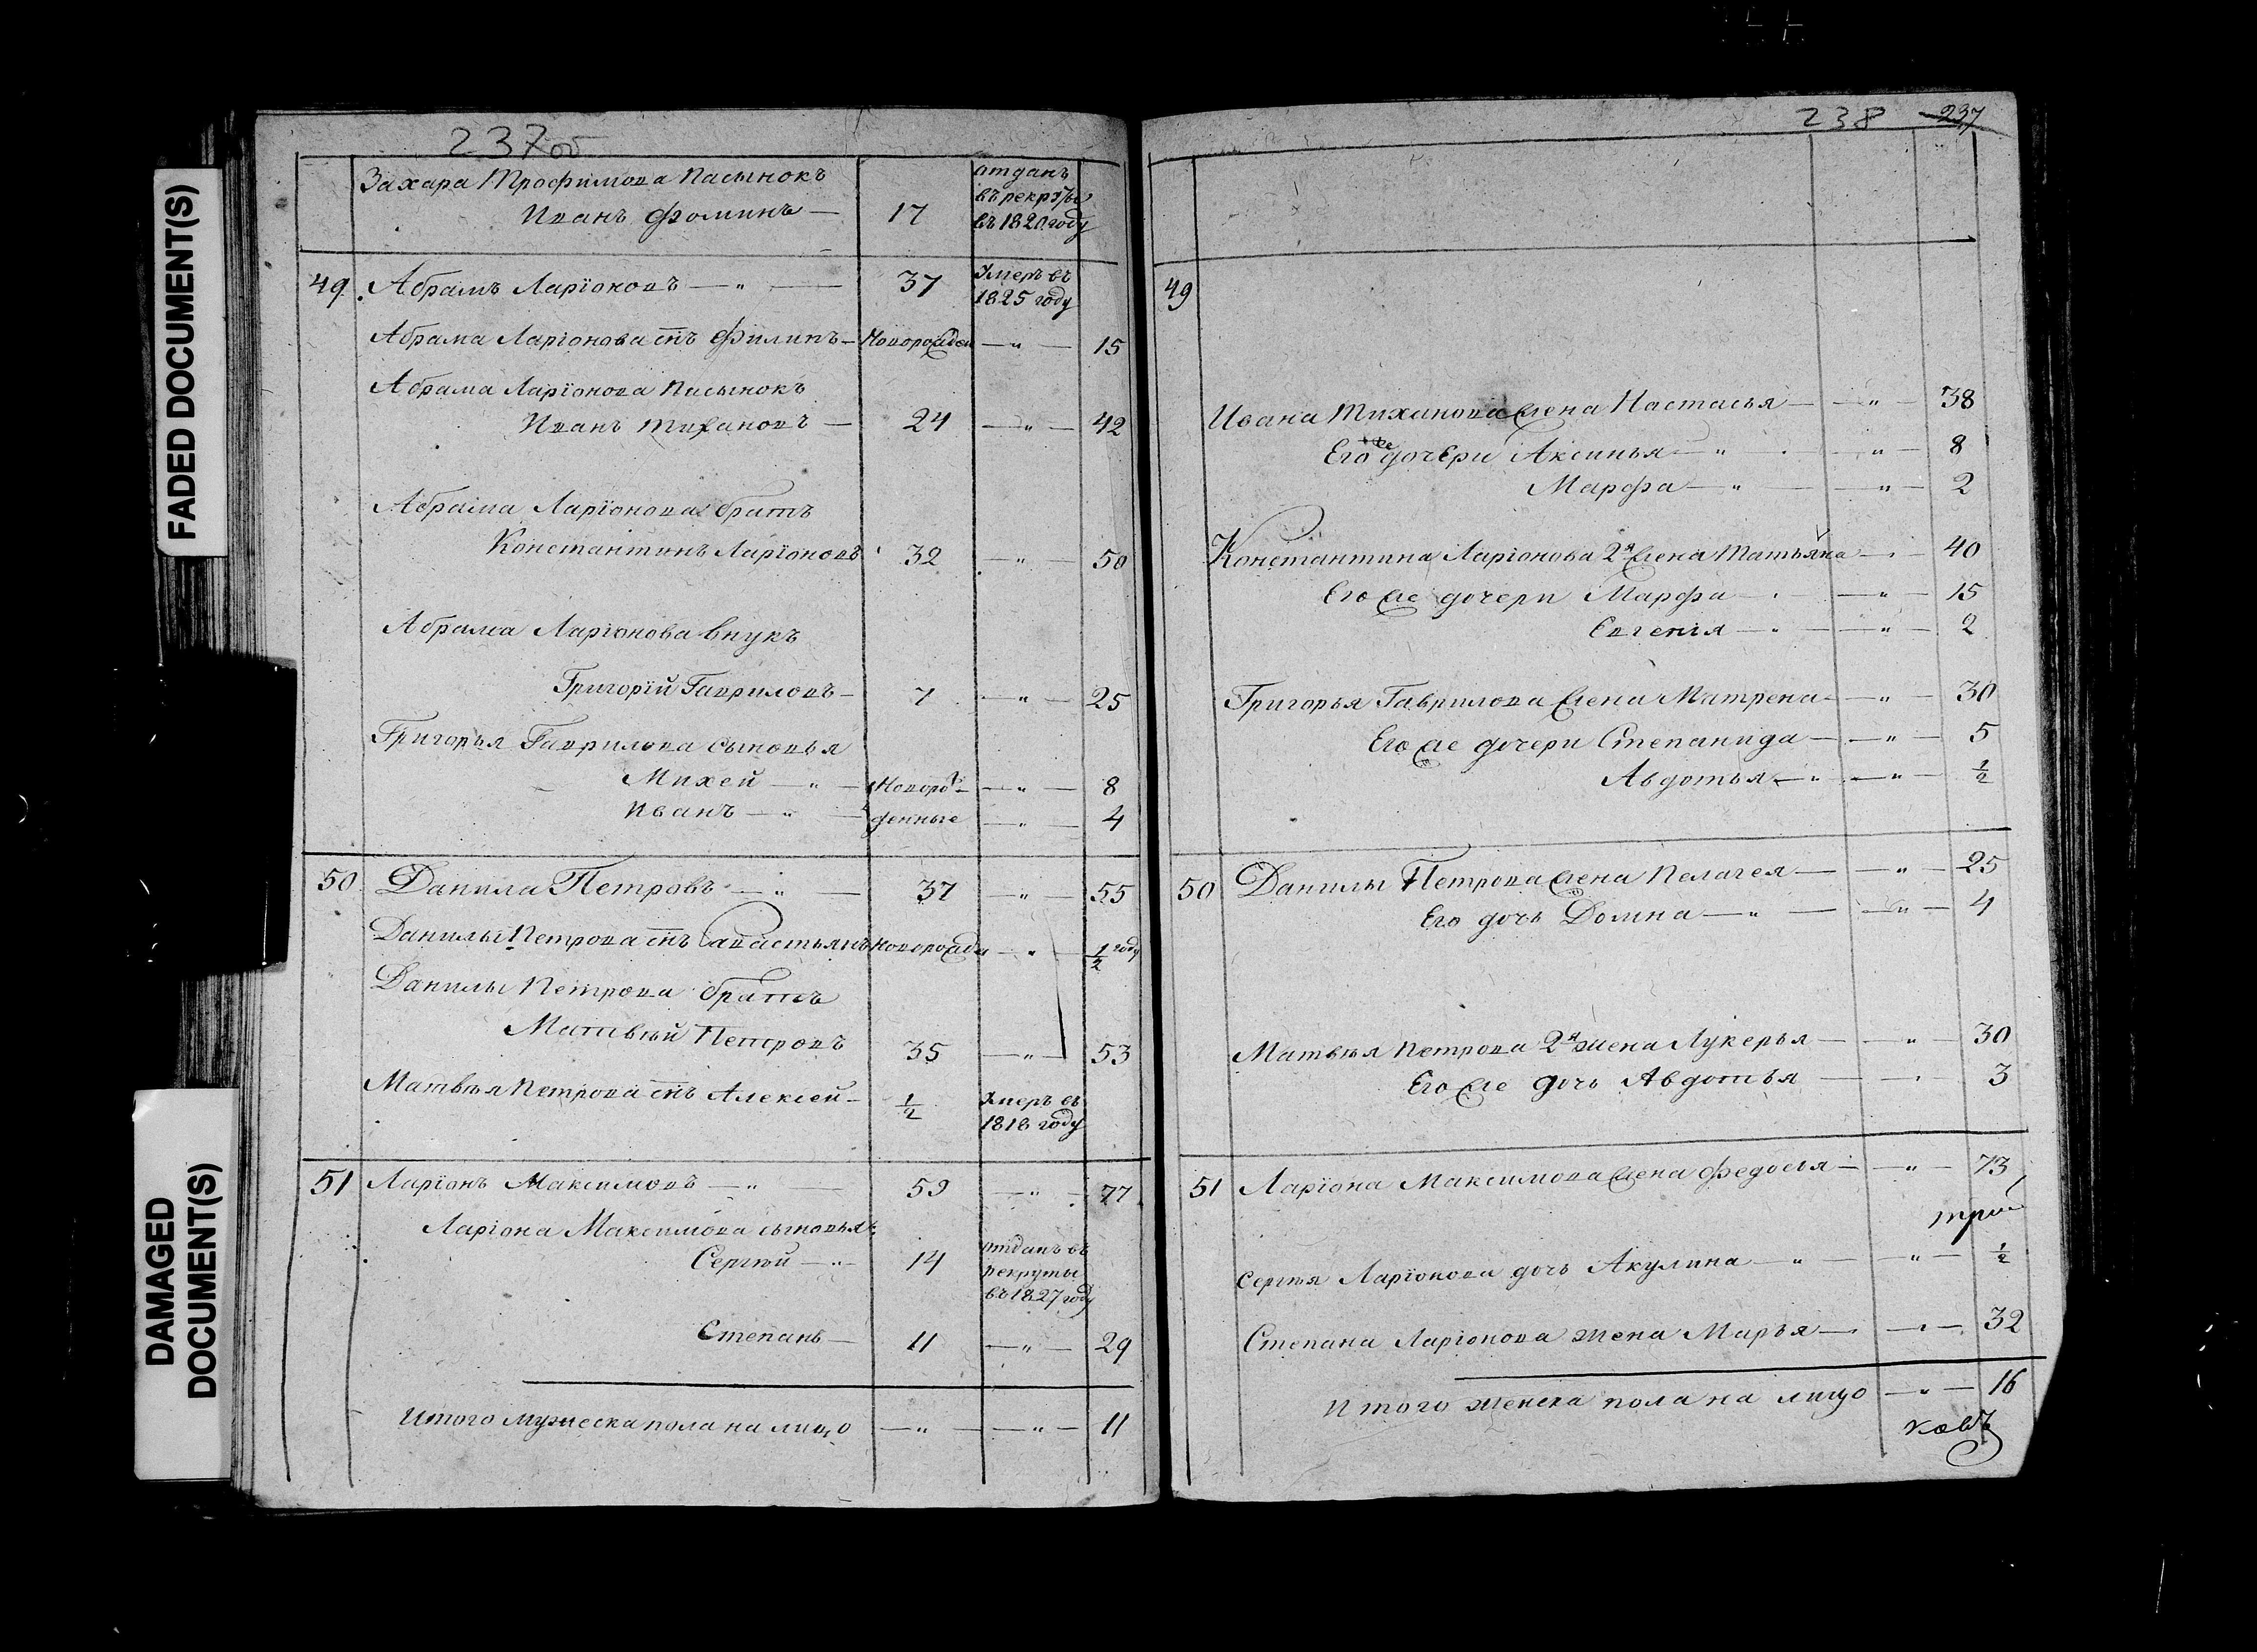 FADED DOCUMENT(S)
DAMAGED DOCUMENT(S)
237об
Захара Трофимова пасынокъ
Иванъ Фоминъ — 17 отданъ въ рекруты въ 1820 году
49 Абрамъ Ларїоновъ — " — 37 умеръ въ 1825 году
Абрама Ларїонова снъ Филипъ — новорожден — " — 15
Абрама Ларїонова пасынокъ
Иванъ Тихановъ — 24 — " — 42
Абрама Ларїонова братъ
Константинъ Ларїоновъ 32 — " — 50
Абрама Ларїонова внукъ
Григорїй Гавриловъ — 7 — " — 25
Григорья Гаврилова сыновья
Михей — " — новорож — " — 8
Иванъ — " — денные — " — 4
50 Данила Петровъ — " — 37 — " — 55
Данилы Петрова снъ Савастьянъ новорожде — " — 1/2 году
Данилы Петрова братъ
Матвѣй Петровъ 35 — " — 53
Матвѣя Петрова снъ Алексей — 1/2 умеръ въ 1818 году
51 Ларїонъ Максимовъ — " — 59 — " — 77
Ларїона Максимова сыновья
Сергѣй — " — 14 отданъ въ рекруты въ 1827 году
Степанъ — 11 — " — 29
Итого мужеска пола на лицо — " — — " — 11
238 237
49
Ивана Тиханова жена Настасья — — " — 38
Его же дочери Аксинья — " — — " — 8
Марфа — " — — " — 2
Константина Ларїонова 2я жена Татьяна — " — 40
Его же дочери Марфа — " — — " — 15
Евгенія — " — — " — 2
Григорья Гаврилова жена Матрена — — " — 30
Его же дочери Степанида — — " — 5
Авдотья — " — — " — 1/2
50 Данилы Петрова жена Пелагея — — " — 25
Его дочь Домна — " — — " — 4
Матвѣя Петрова 2я жена Лукерья — — " — 30
Его же дочь Авдотья — — " — 3
51 Ларїона Максимова жена Федосья — — " — 73
Сергѣя Ларїонова дочь Акулина — " — — " — 1/2
Степана Ларїонова жена Марья — — " — 32
Итого женска пола на лицо — " — 16